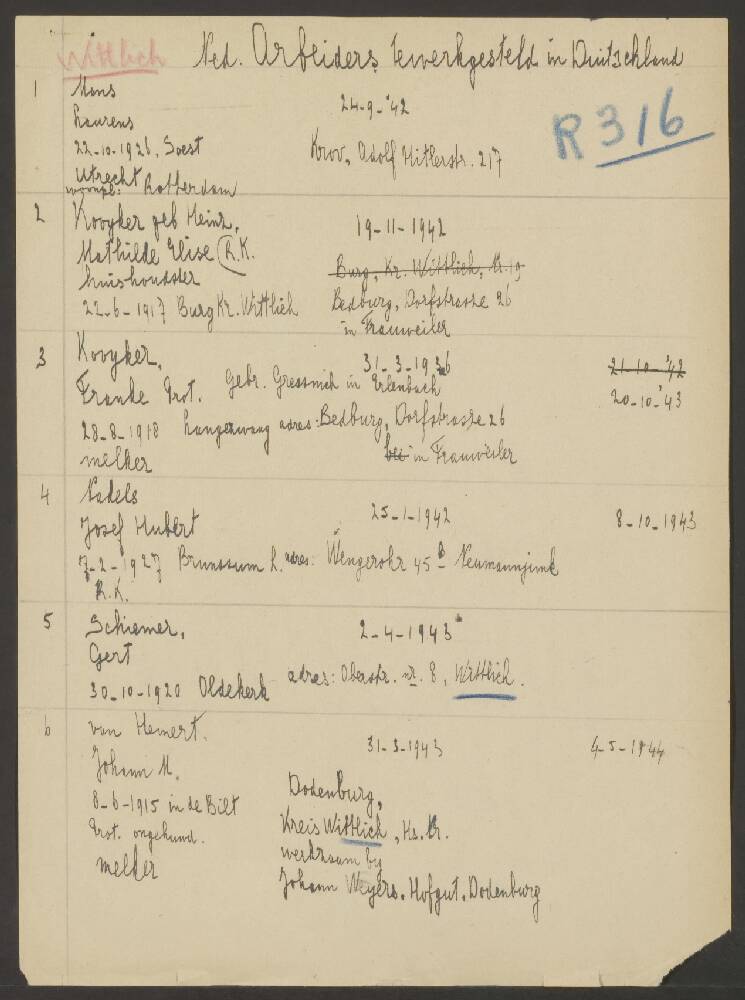 Wittlich Ned. Arbeiders tewerkgesteld in Duitschland
R 316
1 Mans 24-9-'42
Laurens
22-10-1926, Soest Krov, Adolf Hitlerstr. 217
Utrecht
woonpl: Rotterdam
2 Kooyker geb Heinz, 19-11-1942
Mathilde Elise (R.K. Burg, Kr. Wittlich, Nr. 19
huishoudster
22-6-1917 Burg Kr. Wittlich Bedburg, Dorfstrasse 26
in Frauweiler
3 Kooyker, 31-3-1936 21-10-'42
Franke Prot. Gebr. Gressnich in Erlenbach 20-10-'43
28-8-1918 adres: Bedburg, Dorfstrasse 26
melker bei in Frauweiler
4 Nadels
Josef Hubert 25-1-1942 8-10-1943
7-2-1927 Brunssum L. adres: Wengerohr 45 B
R.K.
5 Schiemer, 2-4-1943
Gert
30-10-1920 Oldekerk adres: Oberstr. nr. 8, Wittlich.
6 van Hemert, 31-3-1943 4-5-1944
Johann M.
8-6-1915 in de Bilt Dodenburg,
Prot. ongehuwd. Kreis Wittlich, Hs. Nr.
melker werkzaam by
Johann Weyers, Hofgut, Dodenburg